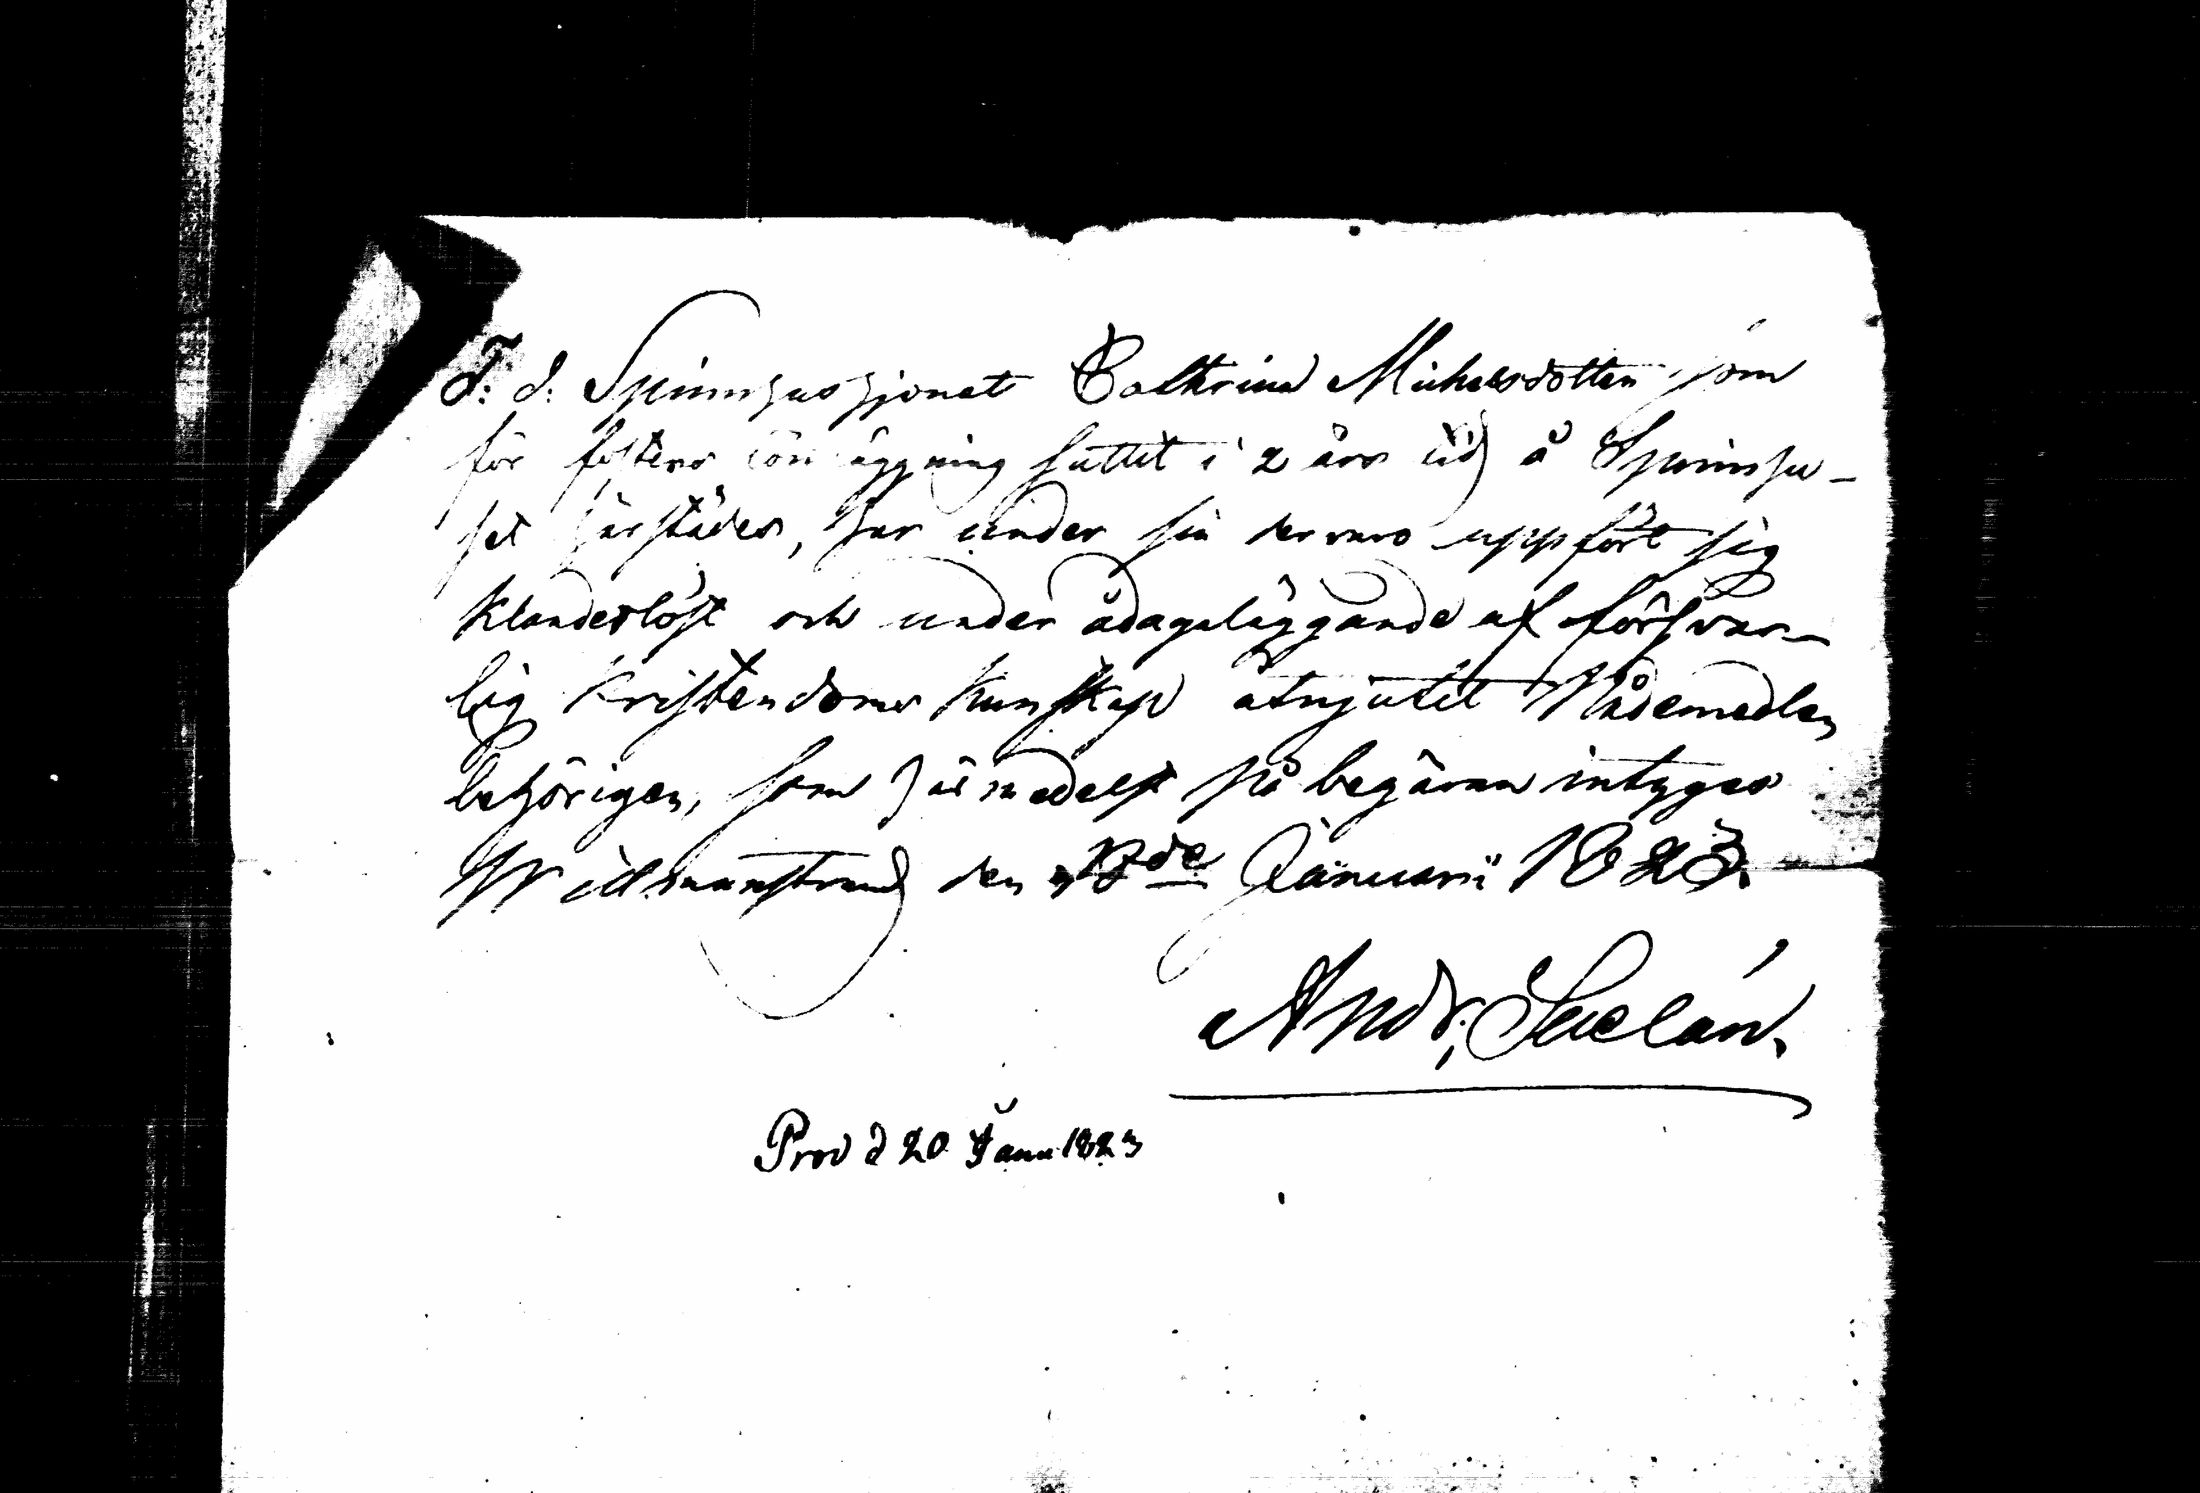 F: d: Spinnhushjonet Cathrina Michelsdotter som
för fosters lönläggning suttit i 2 års tid å Spinnhu-
set härstädes, har under sin dervaro uppfört sig
klanderlöst och under ådagaläggande af försvar-
lig Kristendoms kunskap åtnjutit Nådemedlen
behörigen, som härmedelst på begäran intygas
Willmanstrand den Januarii 1823.
Andr. Saelan.
Prod d 20 Janu 1823